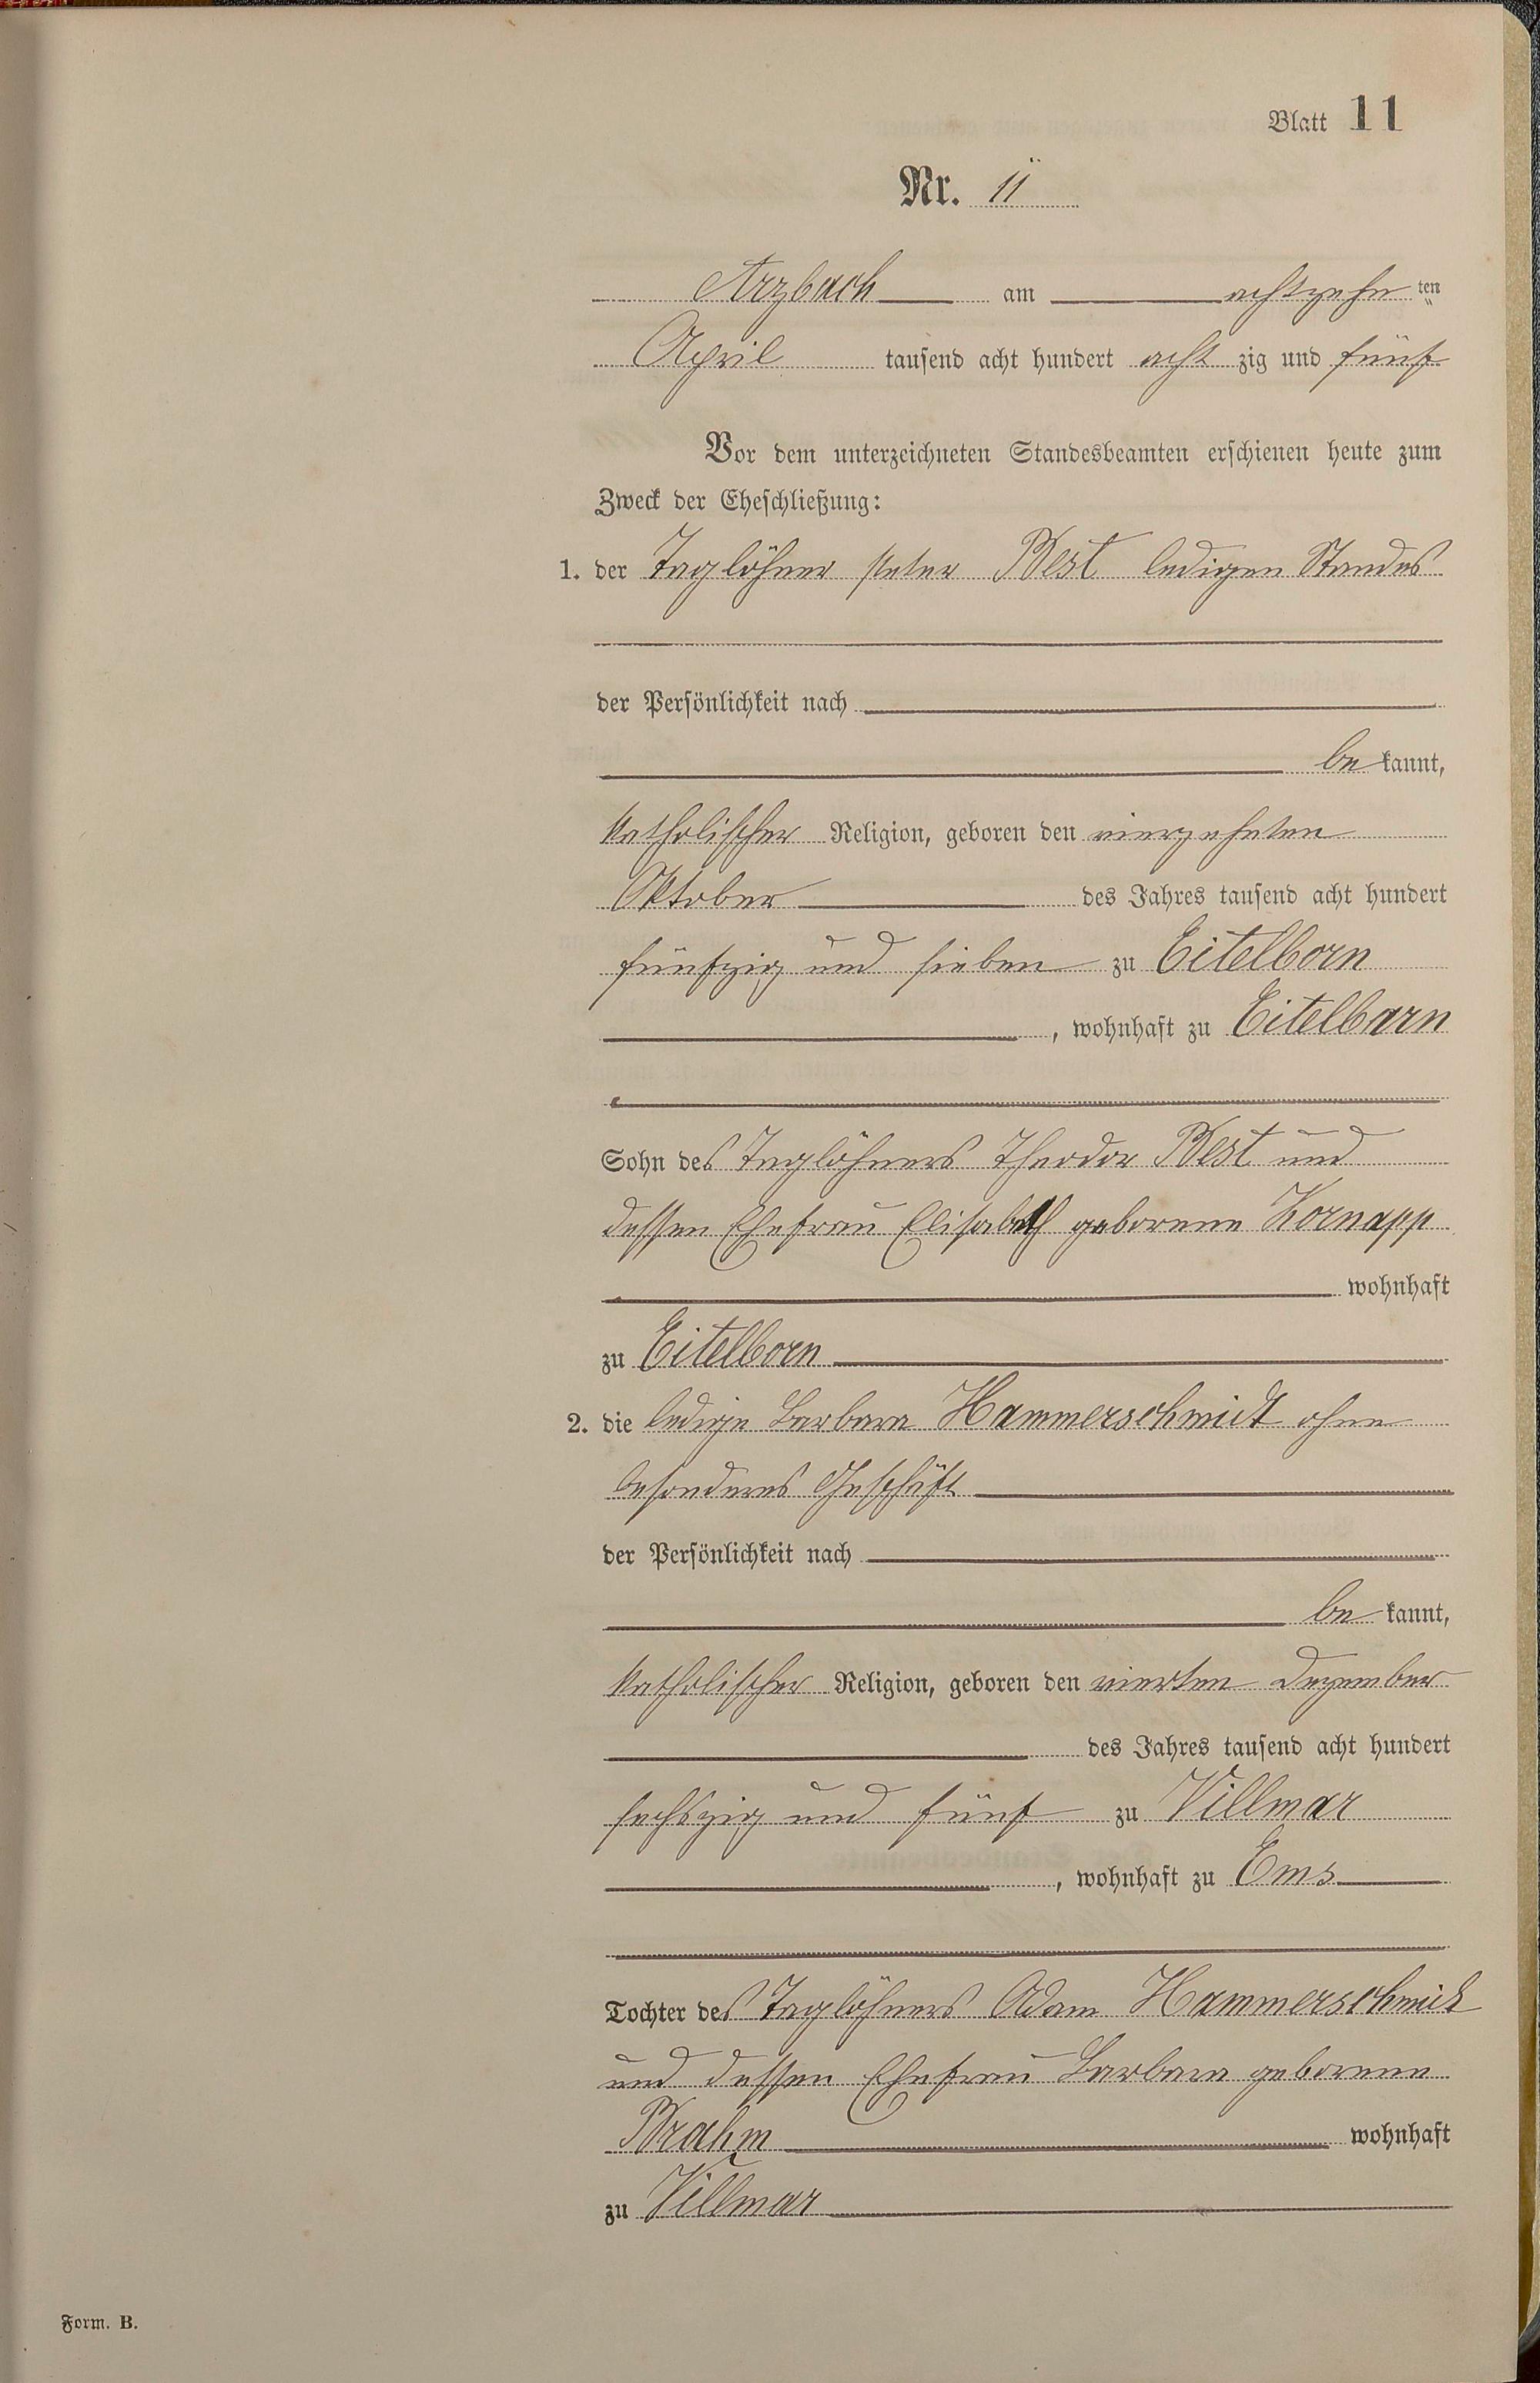 Blatt 11
Nr. 11
Arzbach am achtzehnten
April tausend acht hundert acht zig und fünf
Vor dem unterzeichneten Standesbeamten erschienen heute zum
Zweck der Eheschließung:
1. der Taglöhner Peter Best ledigen Standes
der Persönlichkeit nach
be kannt,
katholischer Religion, geboren den vierzehnten
Oktober des Jahres tausend acht hundert
fünfzig und sieben zu Eitelborn
, wohnhaft zu Eitelborn
Sohn des Taglöhners Theodor Best und
dessen Ehefrau Elisabeth geborene Kornapp
wohnhaft
zu Eitelborn
2. die ledige Barbara Hammerschmidt ohne
besonderes Geschäft
der Persönlichkeit nach
be kannt,
katholischer Religion, geboren den vierten Dezember
des Jahres tausend acht hundert
sechszig und fünf zu Villmar
, wohnhaft zu Ems
Tochter des Taglöhners Adam Hammerschmidt
und dessen Ehefrau Barbara geborene
Brahm wohnhaft
zu Villmar
Form. B.